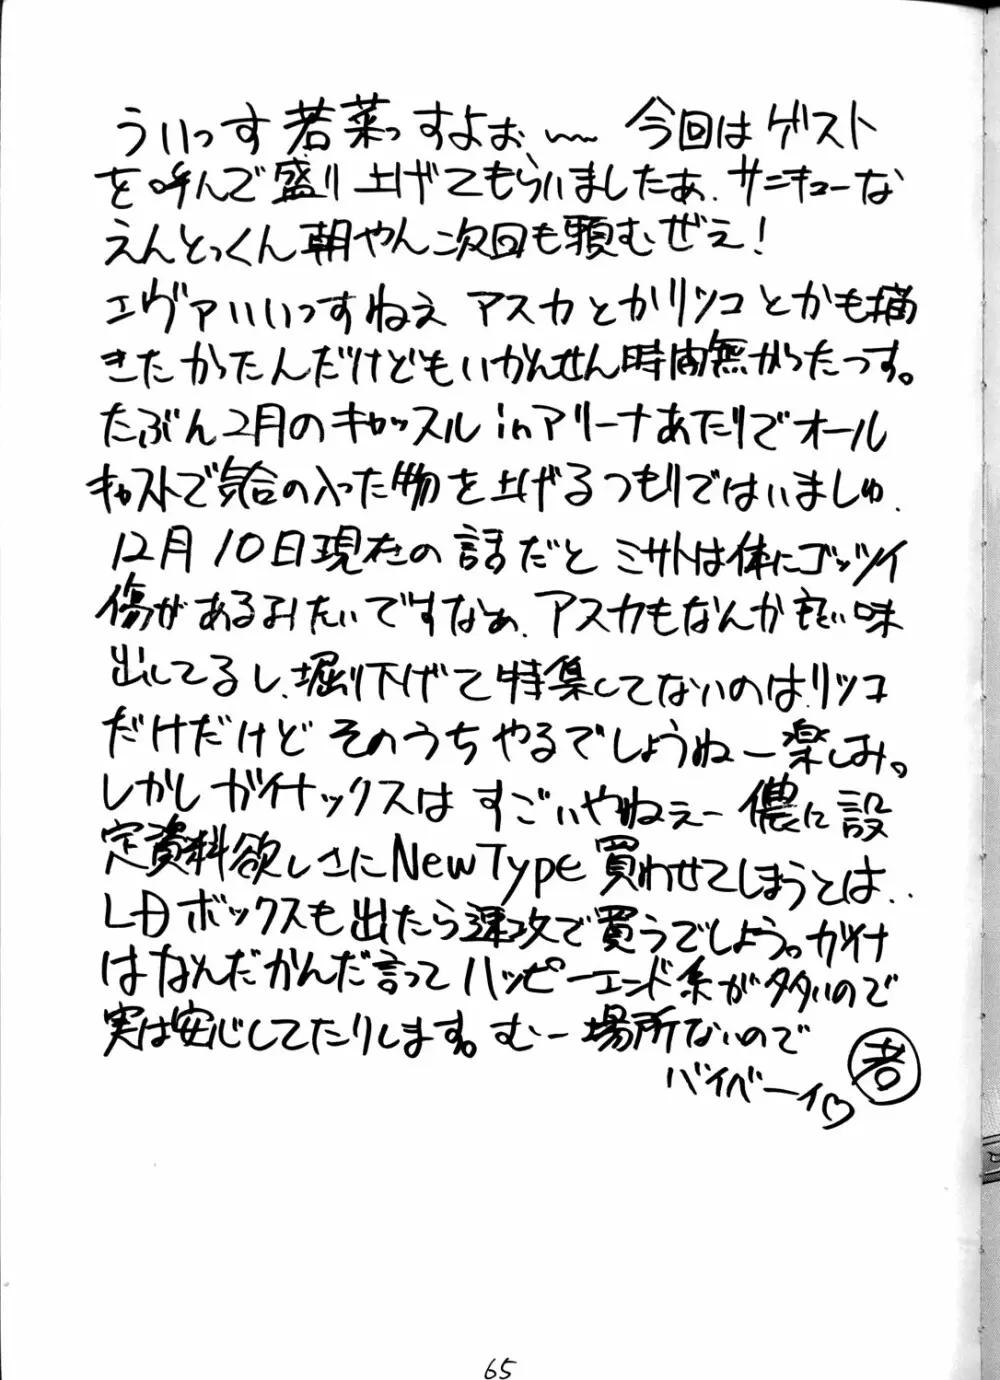 ういっす 若菜っすよぉ、〜 今回は ゲスト
を呼んで盛り上げてもらいましたぁ、サンキューな
えんとっくん朝やん次回も頼むぜえ！
エヴァいいっすねえ アスカとかリツコとかも描
きたかったんだけどもいかんせん時間無かったっす。
たぶん2月のキャッスルinアリーナあたりでオール
キャストで気合の入った物を上げるつもりではいましゅ、
12月10日現在の話だと ミサトは体にゴッツイ
傷があるみたいですなぁ、アスカもなんか良い味
出してるし、堀り下げて特集してないのはリツコ
だけだけど そのうちやるでしょうねー楽しみ。
しかしガイナックスは すごいやねぇー 儂に設
定資料欲しさにNewType買わせてしまうとは..
LDボックスも出たら速攻で買うでしょう。ガイナ
はなんだかんだ言って ハッピーエンド系が多いので
実は安心してたりします。むー場所ないので
バイベーイ♡ 若
65